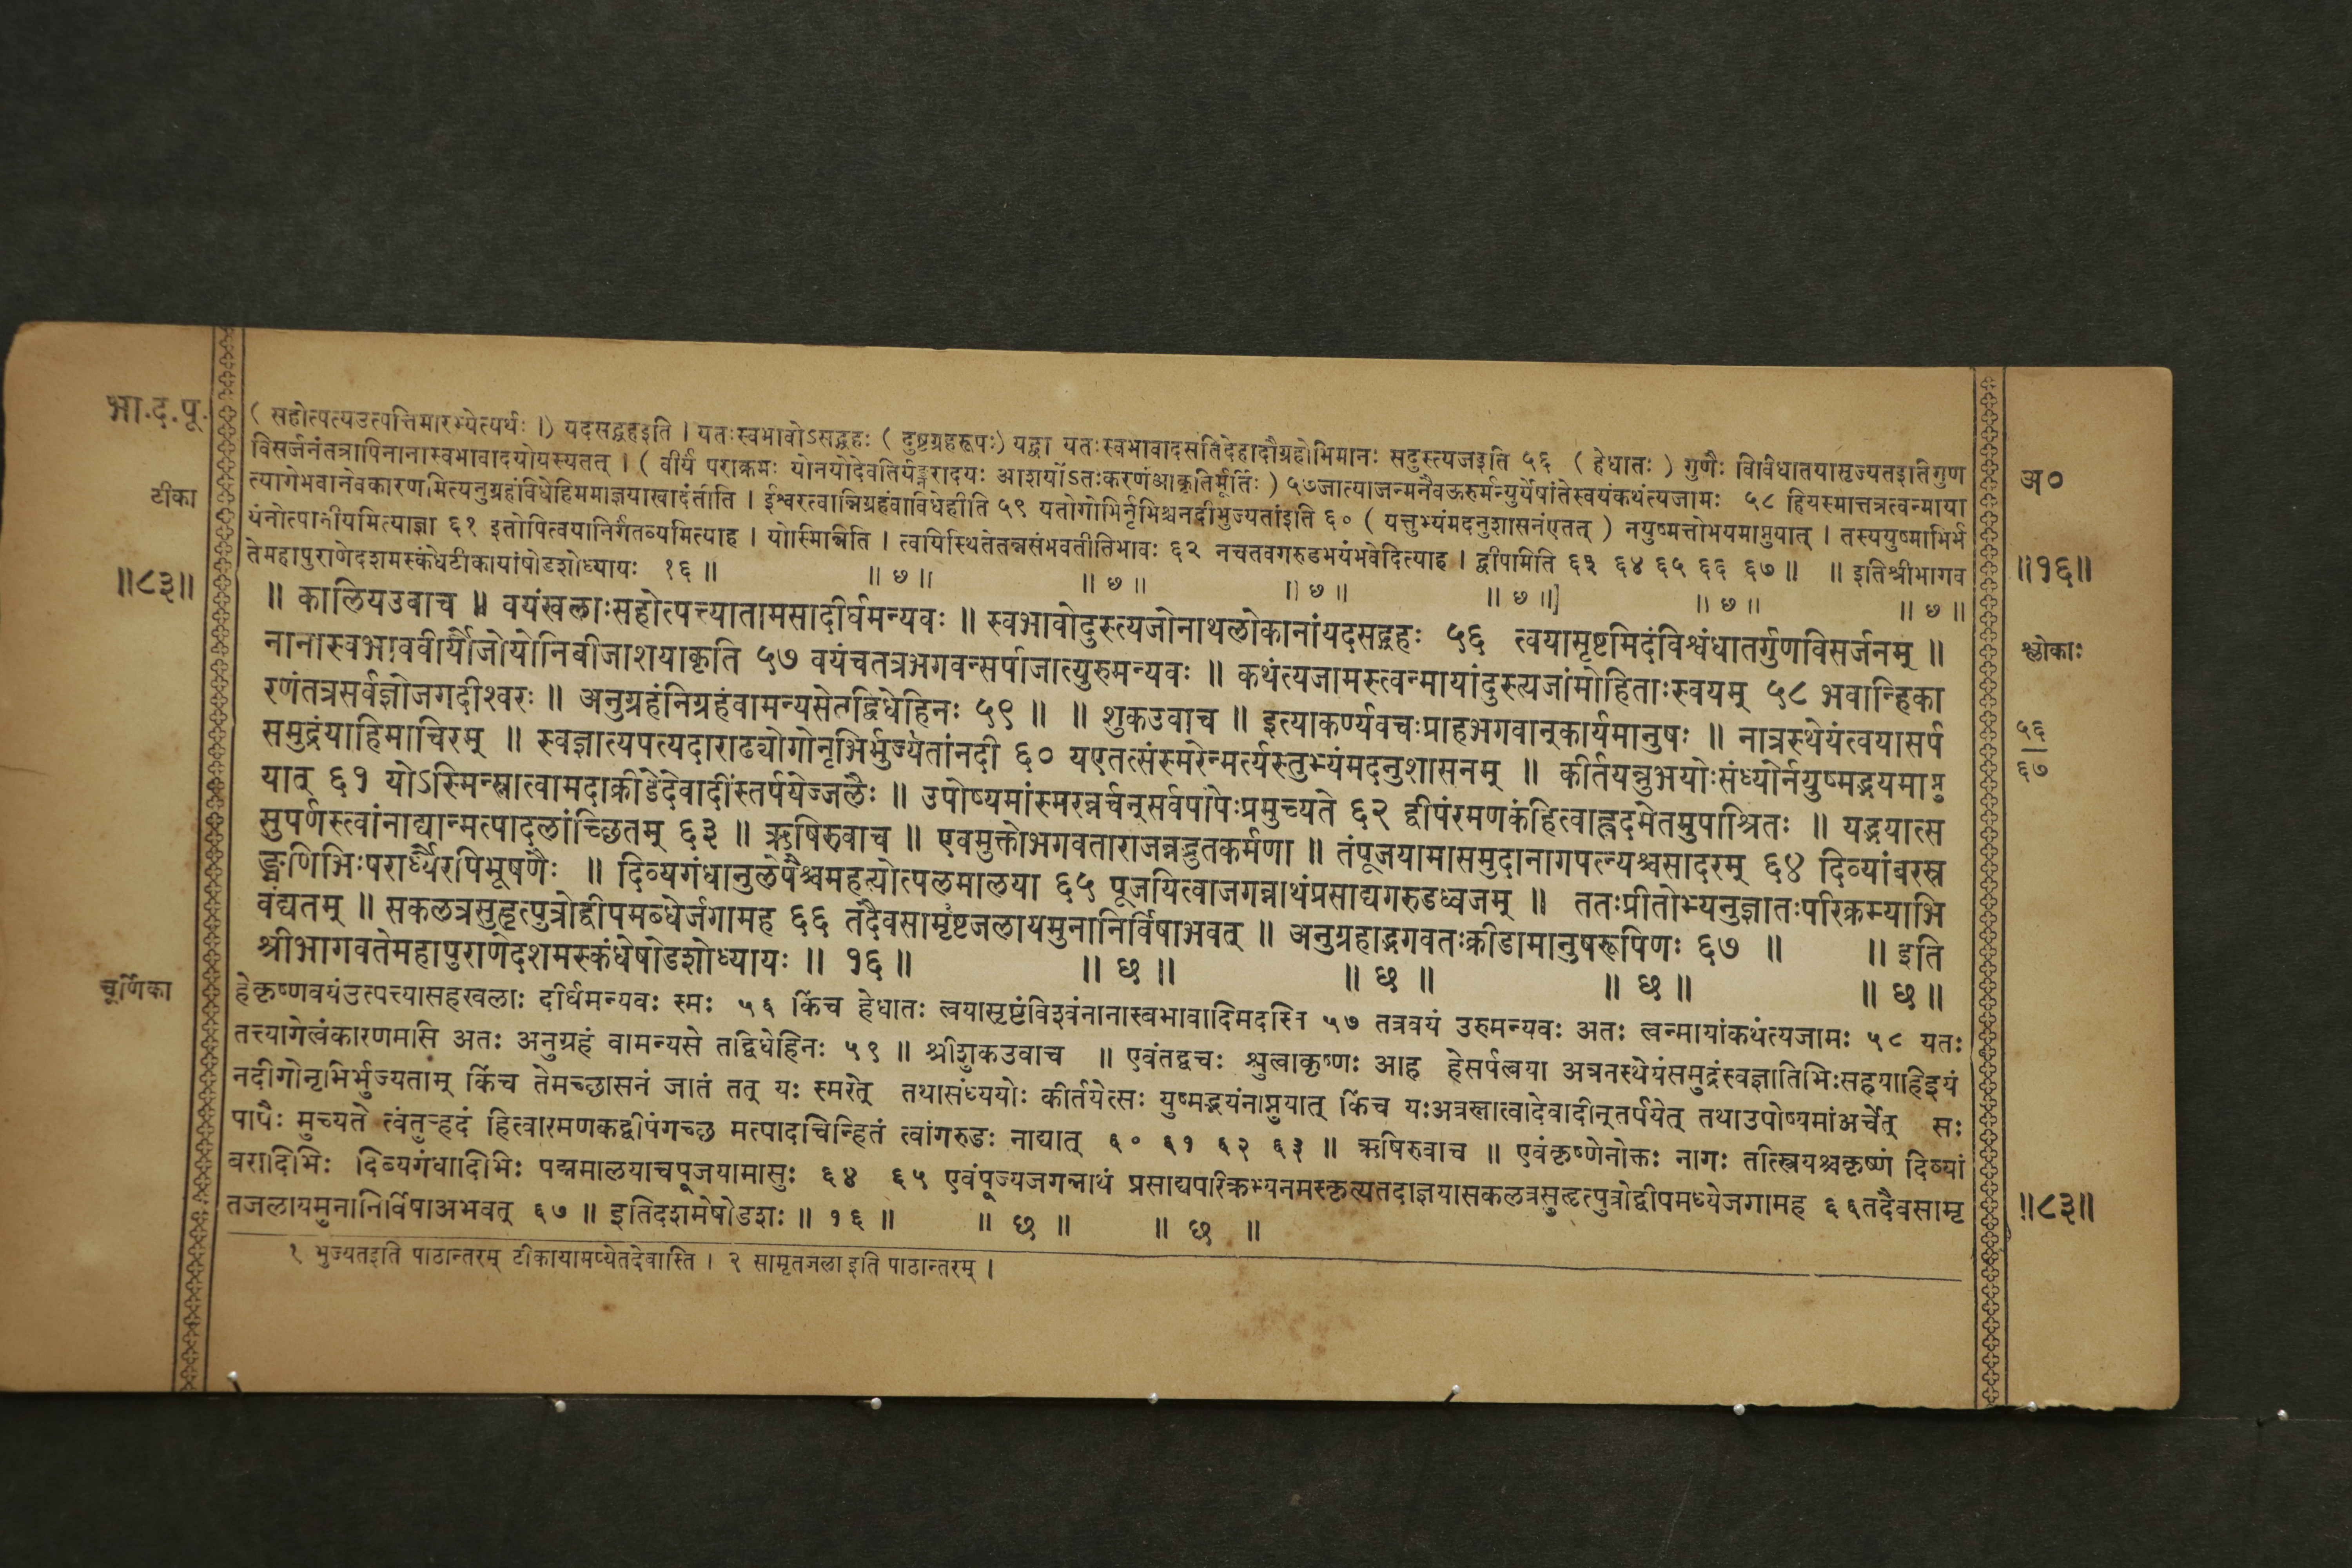 भा.द.पू.
( सहोत्पत्यउत्पत्तिमारभ्येत्यर्थः ।) यदसद्ग्रहइति । यतःस्वभावोऽसद्ग्रहः ( दुष्टग्रहरूपः) यद्वा यतःस्वभावादसतिदेहादौग्रहोभिमानः सदुस्त्यजइति ५६ ( हेधातः ) गुणैः विविधातयासृज्यतइतिगुण
विसर्जनंतत्रापिनानास्वभावादयोयस्यतत् । ( वीर्यं पराक्रमः योनयोदेवतिर्यङ्नरादयः आशयोंऽतःकरणंआकृतिर्मूर्तिः ) ५७जात्याजन्मनैवऊरुर्मन्युर्येषांतेस्वयंकथंत्यजामः ५८ हियस्मात्तत्रत्वन्माया
टीका
त्यागेभवानेवकारणमित्यनुग्रहंविधेहिममाज्ञयाखादंतीति । ईश्वरत्वान्निग्रहंवाविधेहीति ५९ यतोगोभिर्नृभिश्चनदीभुज्यतांइति ६० ( यत्तुभ्यंमदनुशासनंएतत् ) नयुष्मत्तोभयमाप्नुयात् । तस्ययुष्माभिर्भ
अ०
यंनोत्पादनीयमित्याज्ञा ६१ इतोपित्वयानिर्गंतव्यमित्याह । योस्मिन्निति । त्वयिस्थितेतन्नसंभवतीतिभावः ६२ नचतवगरुडभयंभवेदित्याह । द्वीपमिति ६३ ६४ ६५ ६६ ६७ ॥ ॥ इतिश्रीभागव
तेमहापुराणेदशमस्कंधेटीकायांषोडशोध्यायः १६ ॥ ॥ छ ॥ ॥ छ ॥ ॥ छ ॥ ॥ छ ॥ ॥ छ ॥ ॥ छ ॥
॥८३॥
॥१६॥
॥ कालियउवाच ॥ वयंखलाःसहोत्पत्त्यातामसादीर्घमन्यवः ॥ स्वभावोदुस्त्यजोनाथलोकानांयदसद्ग्रहः ५६ त्वयासृष्टमिदंविश्वंधातर्गुणविसर्जनम् ॥
श्लोकाः
नानास्वभाववीर्यौजोयोनिबीजाशयाकृति ५७ वयंचतत्रभगवन्सर्पाजात्युरुमन्यवः ॥ कथंत्यजामस्त्वन्मायांदुस्त्यजांमोहिताःस्वयम् ५८ भवान्हिका
रणंतत्रसर्वज्ञोजगदीश्वरः ॥ अनुग्रहंनिग्रहंवामन्यसेतद्विधेहिनः ५९ ॥ ॥ शुकउवाच ॥ इत्याकर्ण्यवचःप्राहभगवान्कार्यमानुषः ॥ नात्रस्थेयंत्वयासर्प
५६
समुद्रंयाहिमाचिरम् ॥ स्वज्ञात्यपत्यदाराढ्योगोनृभिर्भुज्यतांनदी ६० यएतत्संस्मरेन्मर्त्यस्तुभ्यंमदनुशासनम् ॥ कीर्तयन्नुभयोःसंध्योर्नयुष्मद्भयमाप्नु
६७
यात् ६१ योऽस्मिन्स्नात्वामदाक्रीडेदेवादींस्तर्पयेज्जलैः ॥ उपोष्यमांस्मरन्नर्चन्सर्वपापैःप्रमुच्यते ६२ द्वीपंरमणकंहित्वाह्रदमेतमुपाश्रितः ॥ यद्भयात्स
सुपर्णस्त्वांनाद्यान्मत्पादलांच्छितम् ६३ ॥ ऋषिरुवाच ॥ एवमुक्तोभगवताराजन्नद्भुतकर्मणा ॥ तंपूजयामासमुदानागपत्न्यश्चसादरम् ६४ दिव्यांबरस्र
ङ्मणिभिःपरार्ध्यैरपिभूषणैः ॥ दिव्यगंधानुलेपैश्चमहत्योत्पलमालया ६५ पूजयित्वाजगन्नाथंप्रसाद्यगरुडध्वजम् ॥ ततःप्रीतोभ्यनुज्ञातःपरिक्रम्याभि
वंद्यतम् ॥ सकलत्रसुहृत्पुत्रोद्वीपमब्धेर्जगामह ६६ तदैवसामृष्टजलायमुनानिर्विषाभवत् ॥ अनुग्रहाद्भगवतःक्रीडामानुषरूपिणः ६७ ॥ ॥ इति
श्रीभागवतेमहापुराणेदशमस्कंधेषोडशोध्यायः ॥ १६ ॥ ॥ छ ॥ ॥ छ ॥ ॥ छ ॥ ॥ छ ॥
चूर्णिका
हेकृष्णवयंउत्पत्त्यासहखलाः दीर्घमन्यवः स्मः ५६ किंच हेधातः त्वयासृष्टंविश्वंनानास्वभावादिमदस्ति ५७ तत्रवयं उरुमन्यवः अतः त्वन्मायांकथंत्यजामः ५८ यतः
तत्त्यागेत्वंकारणमसि अतः अनुग्रहं वामन्यसे तद्विधेहिनः ५९ ॥ श्रीशुकउवाच ॥ एवंतद्वचः श्रुत्वाकृष्णः आह हेसर्पत्वया अत्रनस्थेयंसमुद्रंस्वज्ञातिभिःसहयाहिइयं
नदीगोनृभिर्भुज्यताम् किंच तेमच्छासनं जातं तत् यः स्मरेत् तथासंध्ययोः कीर्तयेत्सः युष्मद्भयंनाप्नुयात् किंच यःअत्रस्नात्वादेवादीन्तर्पयेत् तथाउपोष्यमांअर्चेत् सः
पापैः मुच्यते त्वंतुऱ्हदं हित्वारमणकद्वीपंगच्छ मत्पादचिन्हितं त्वांगरुडः नाद्यात् ६० ६१ ६२ ६३ ॥ ऋषिरुवाच ॥ एवंकृष्णेनोक्तः नागः तत्स्त्रियश्चकृष्णं दिव्यां
बरादिभिः दिव्यगंधादिभिः पद्ममालयाचपूजयामासुः ६४ ६५ एवंपूज्यजगन्नाथं प्रसाद्यपरिक्रम्यनमस्कृत्यतदाज्ञयासकलत्रसुहृत्पुत्रोद्वीपमध्येजगामह ६६तदैवसामृ
तजलायमुनानिर्विषाअभवत् ६७ ॥ इतिदशमेषोडशः ॥ १६ ॥ ॥ छ ॥ ॥ छ ॥
॥८३॥
१ भुज्यतइति पाठान्तरम् टीकायामप्येतदेवास्ति । २ सामृतजला इति पाठान्तरम् ।